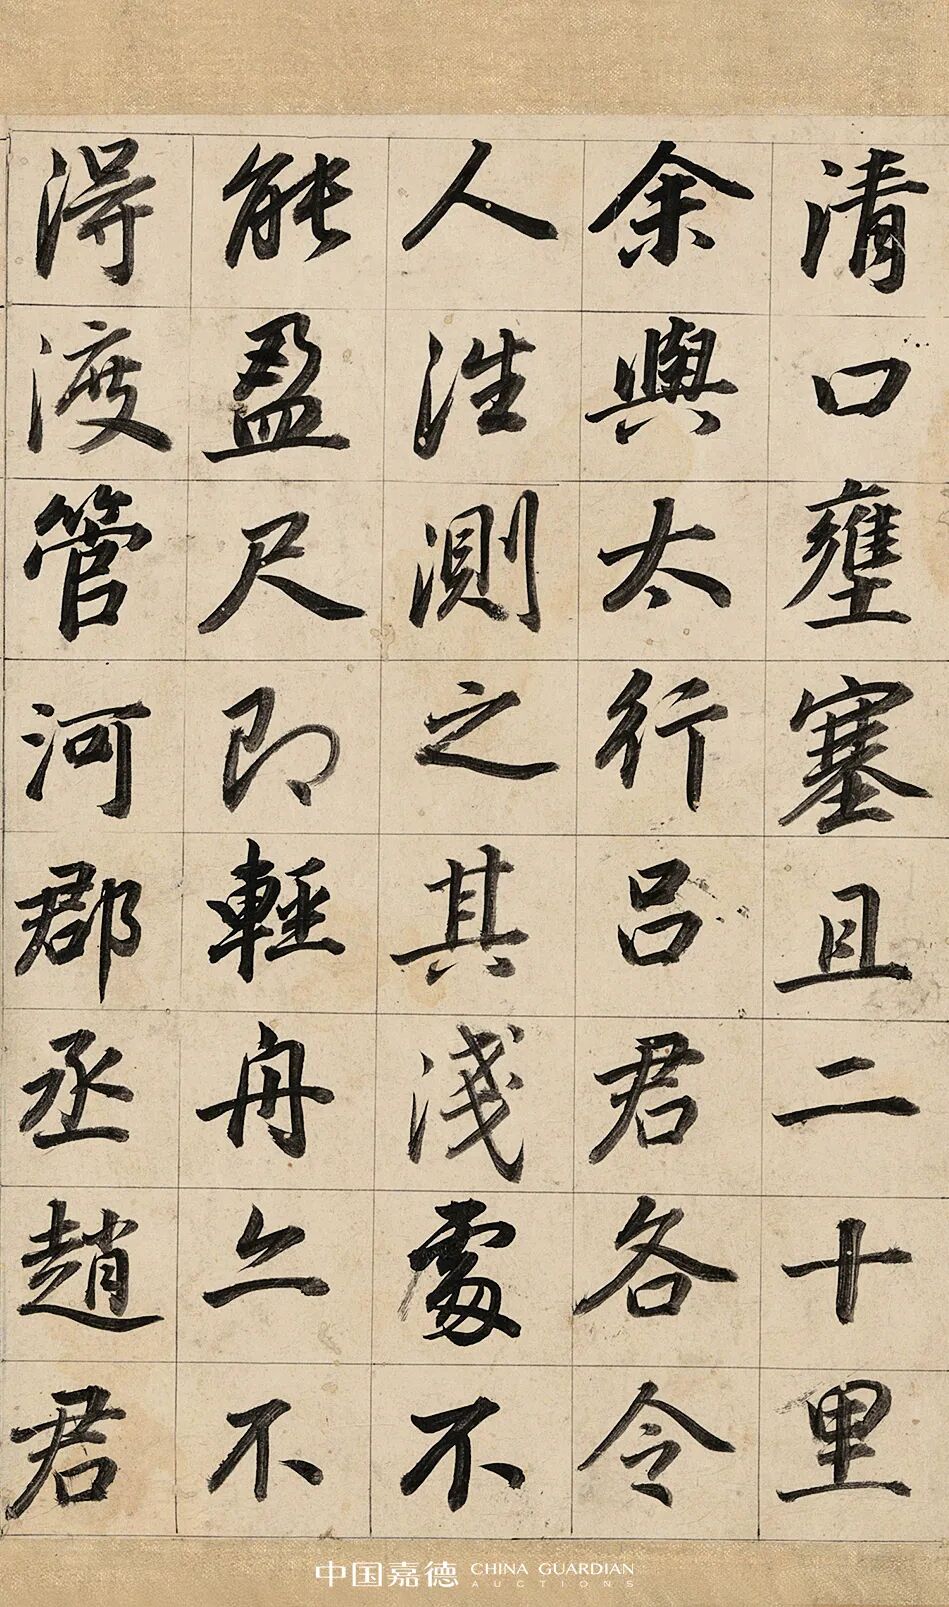 清口壅塞且二十里
余與太行吕君各令
人往測之其淺處不
能盈尺即輕舟亦不
得渡管河郡丞趙君
中国嘉德 CHINA GUARDIAN
AUCTIONS